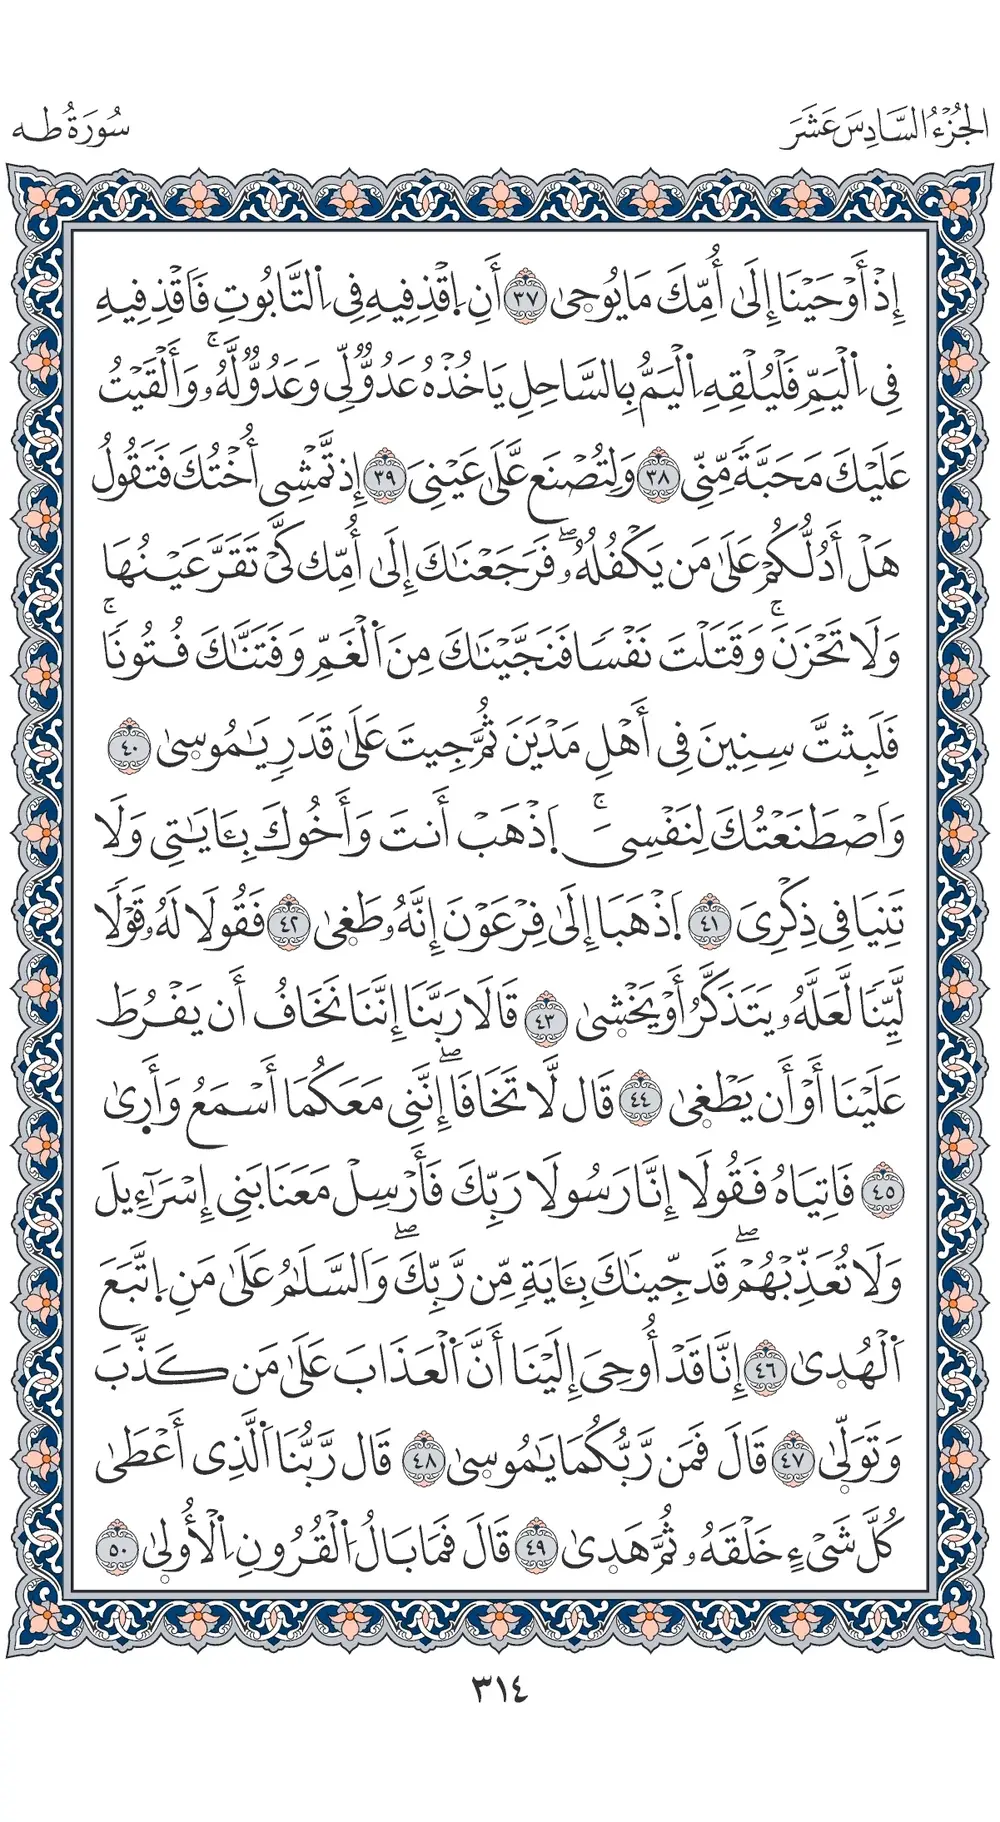 الجُزْءُ السَّادِسَ عَشَرَ
سُورَةُ طه
إِذْ أَوْحَيْنَا إِلَىٰ أُمِّكَ مَا يُوحِىٰ ٣٧ أَنِ اِ۪قْذِفِيهِ فِى اِ۬لتَّابُوتِ فَاقْذِفِيهِ
فِى اِ۬لْيَمِّ فَلْيُلْقِهِ اِ۬لْيَمُّ بِالسَّاحِلِ يَاخُذْهُ عَدُوٌّ لِّى وَعَدُوٌّ لَّهُۥۚ وَأَلْقَيْتُ
عَلَيْكَ مَحَبَّةً مِّنِّى ٣٨ وَلِتُصْنَع عَّلَىٰ عَيْنِىَ ٣٩ إِذ تَّمْشِى أُخْتُكَ فَتَقُولُ
هَلْ أَدُلُّكُمْ عَلَىٰ مَن يَكْفُلُهُۥۖ فَرَجَعْنَاكَ إِلَىٰ أُمِّك كَّىْ تَقَرَّ عَيْنُهَا
وَلَا تَحْزَنَۚ وَقَتَلْتَ نَفْسًا فَنَجَّيْنَاكَ مِنَ اَ۬لْغَمِّ وَفَتَنَّاكَ فُتُونًاۚ
فَلَبِثتَّ سِنِينَ فِى أَهْلِ مَدْيَنَ ثُمَّ جِيتَ عَلَىٰ قَدَرٍ يَـٰمُوسِىٰ ٤٠
وَاصْطَنَعْتُكَ لِنَفْسِىَۚ اَ۪ذْهَبْ أَنتَ وَأَخُوكَ بِـَٔايَـٰتِى وَلَا
تَنِيَا فِى ذِكْرِىَ ٤١ اَ۪ذْهَبَا إِلَىٰ فِرْعَوْنَ إِنَّهُۥ طَغِىٰ ٤٢ فَقُولَا لَهُۥ قَوْلًا
لَّيِّنًا لَّعَلَّهُۥ يَتَذَكَّرُ أَوْ يَخْشِىٰ ٤٣ قَالَا رَبَّنَا إِنَّنَا نَخَافُ أَن يَفْرُطَ
عَلَيْنَا أَوْ أَن يَطْغِىٰ ٤٤ قَال لَّا تَخَافَاۖ إِنَّنِى مَعَكُمَا أَسْمَعُ وَأَرِىٰ
٤٥ فَاتِيَاهُ فَقُولَا إِنَّا رَسُولَا رَبِّكَ فَأَرْسِلْ مَعَنَا بَنِى إِسْرَٰٓءِيلَ
وَلَا تُعَذِّبْهُمْۖ قَد جِّينَاكَ بِـَٔايَةٍ مِّن رَّبِّكَۖ وَالسَّلَـٰمُ عَلَىٰ مَنِ اِ۪تَّبَعَ
اَ۬لْهُدِىٰ ٤٦ إِنَّا قَدْ أُوحِىَ إِلَيْنَا أَنَّ اَ۬لْعَذَابَ عَلَىٰ مَن كَذَّبَ
وَتَوَلِّىٰ ٤٧ قَالَ فَمَن رَّبُّكُمَا يَـٰمُوسِىٰ ٤٨ قَال رَّبُّنَا اَ۬لَّذِى أَعْطَىٰ
كُلَّ شَىْءٍ خَلْقَهُۥ ثُمَّ هَدِىٰ ٤٩ قَالَ فَمَا بَالُ اُ۬لْقُرُونِ اِ۬لْأُولِىٰ ٥٠
٣١٤